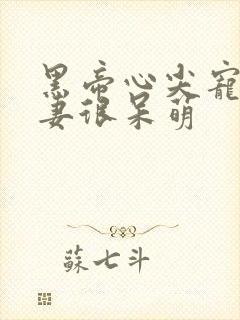 黑帝心尖寵
妻很呆萌
蘇七斗